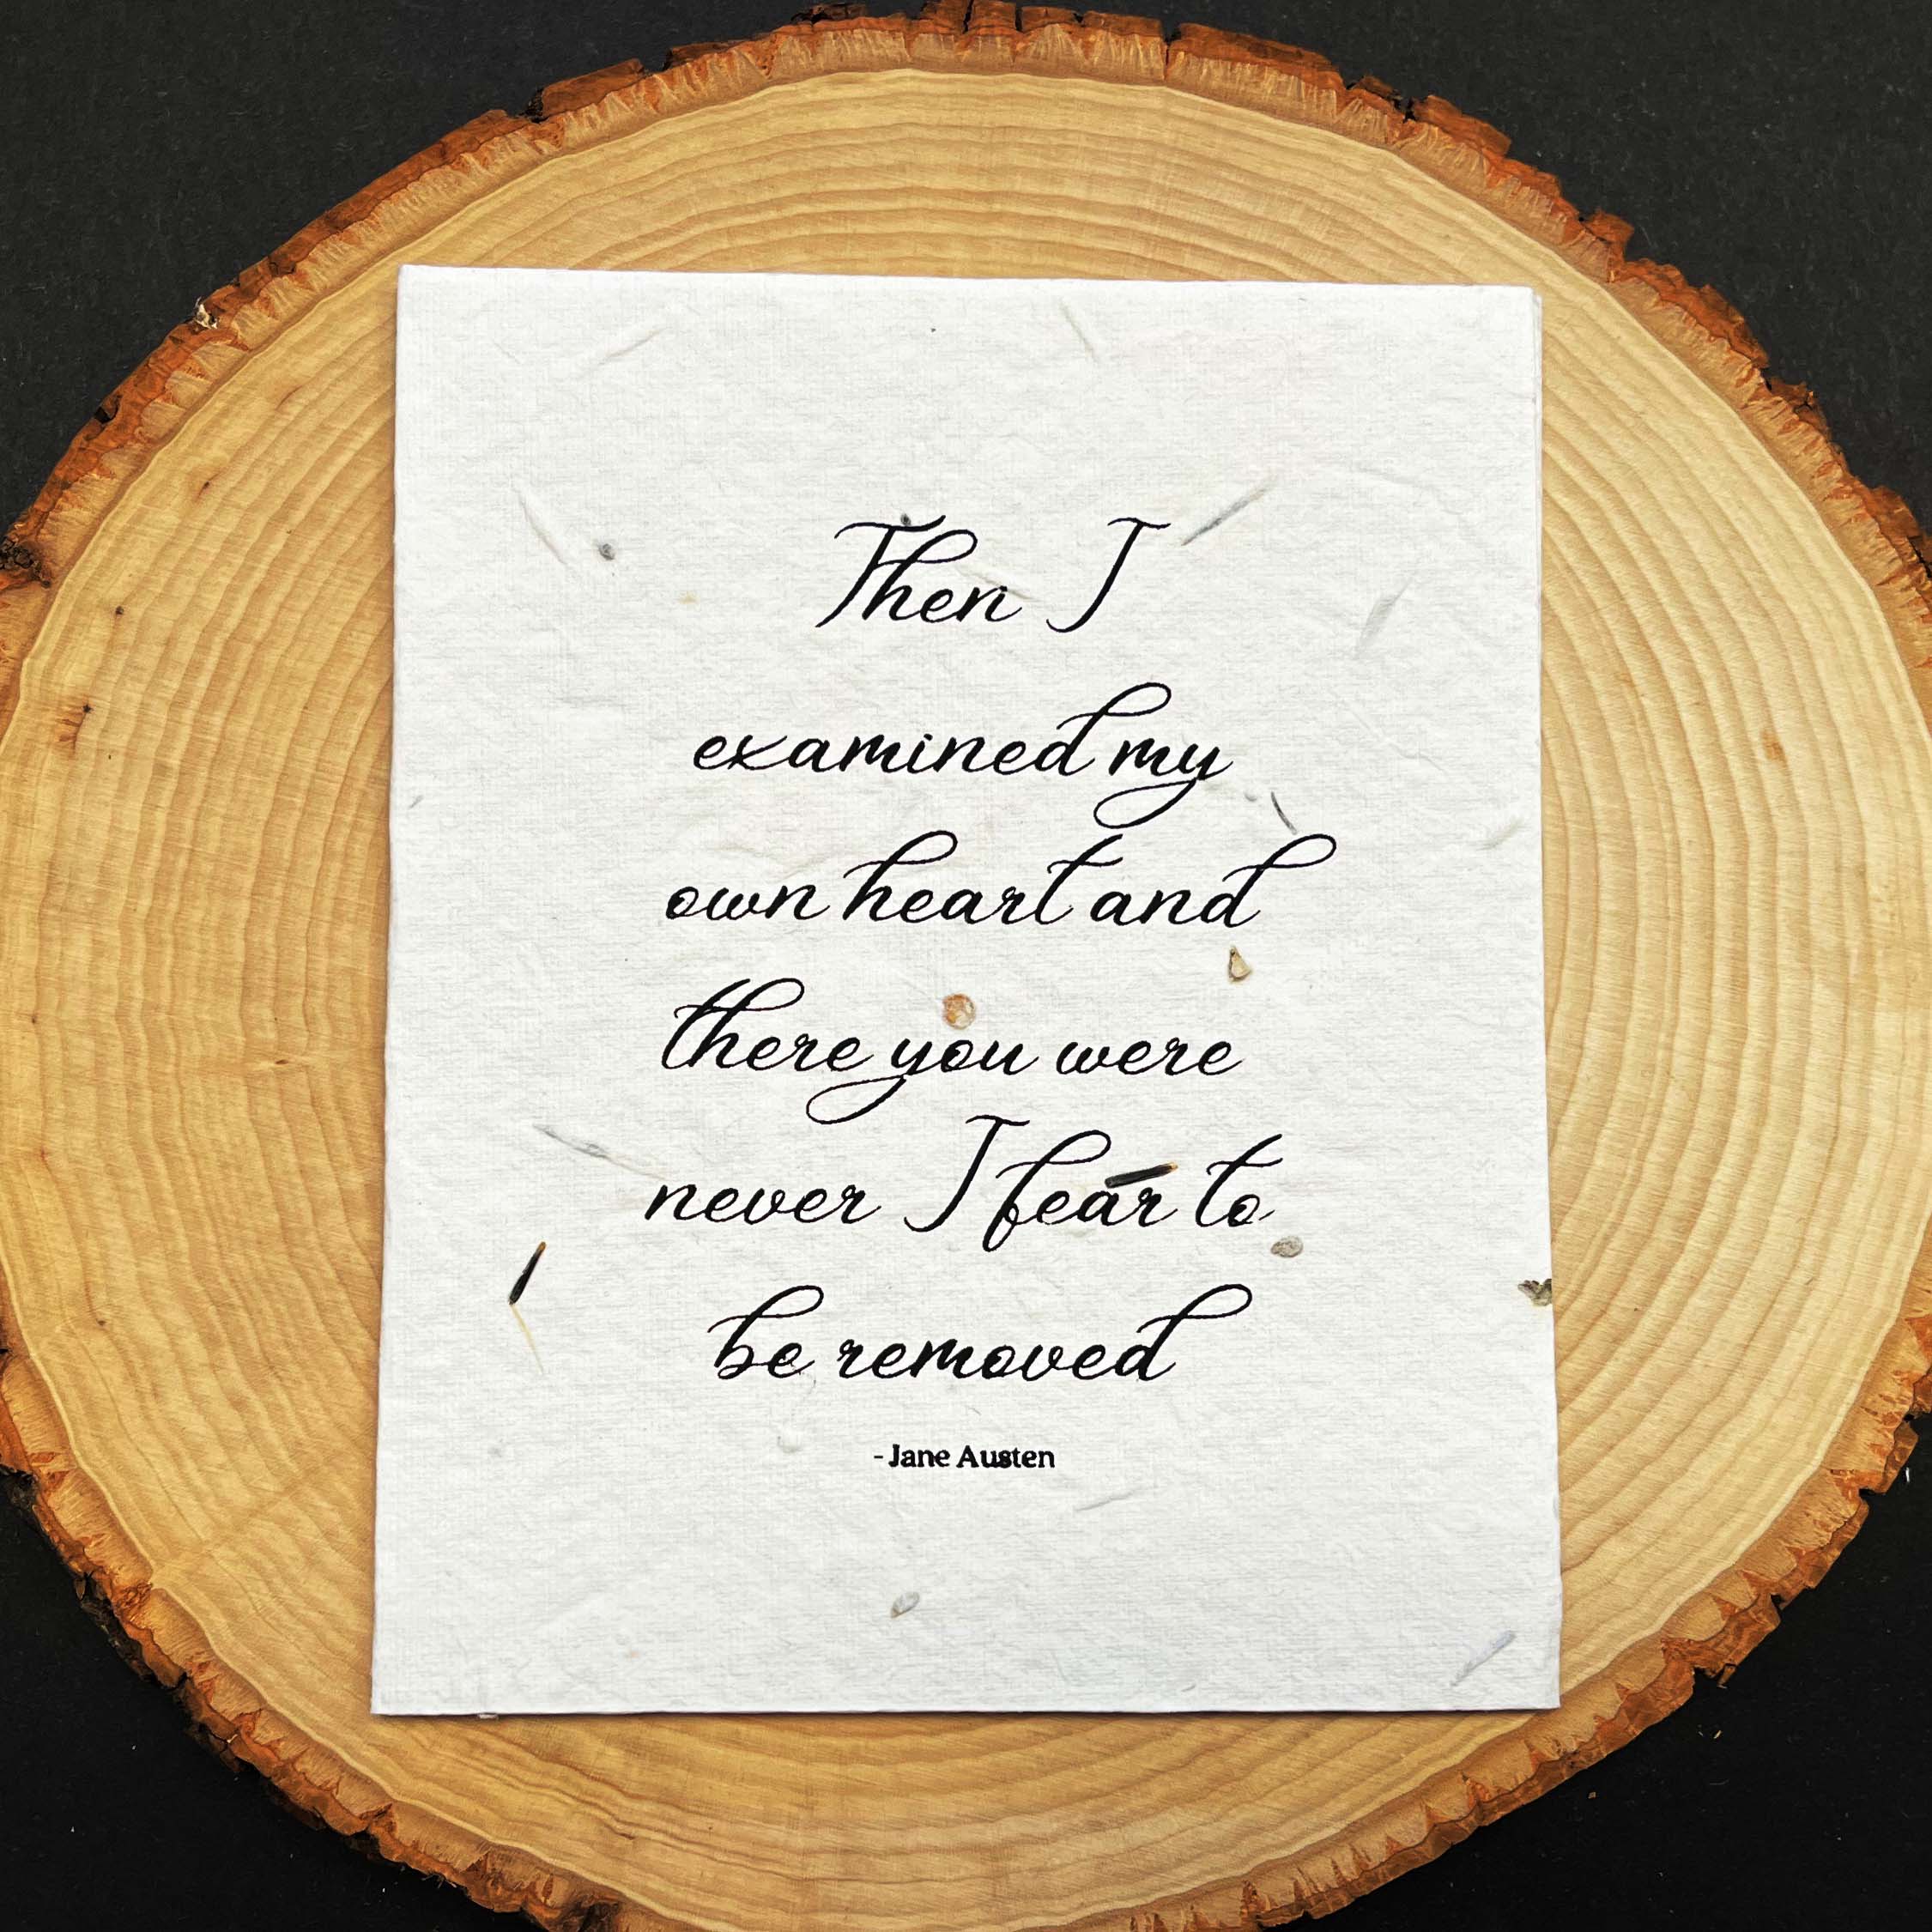 Then I
examined my
own heart and
there you were
never I fear to
be removed
- Jane Austen